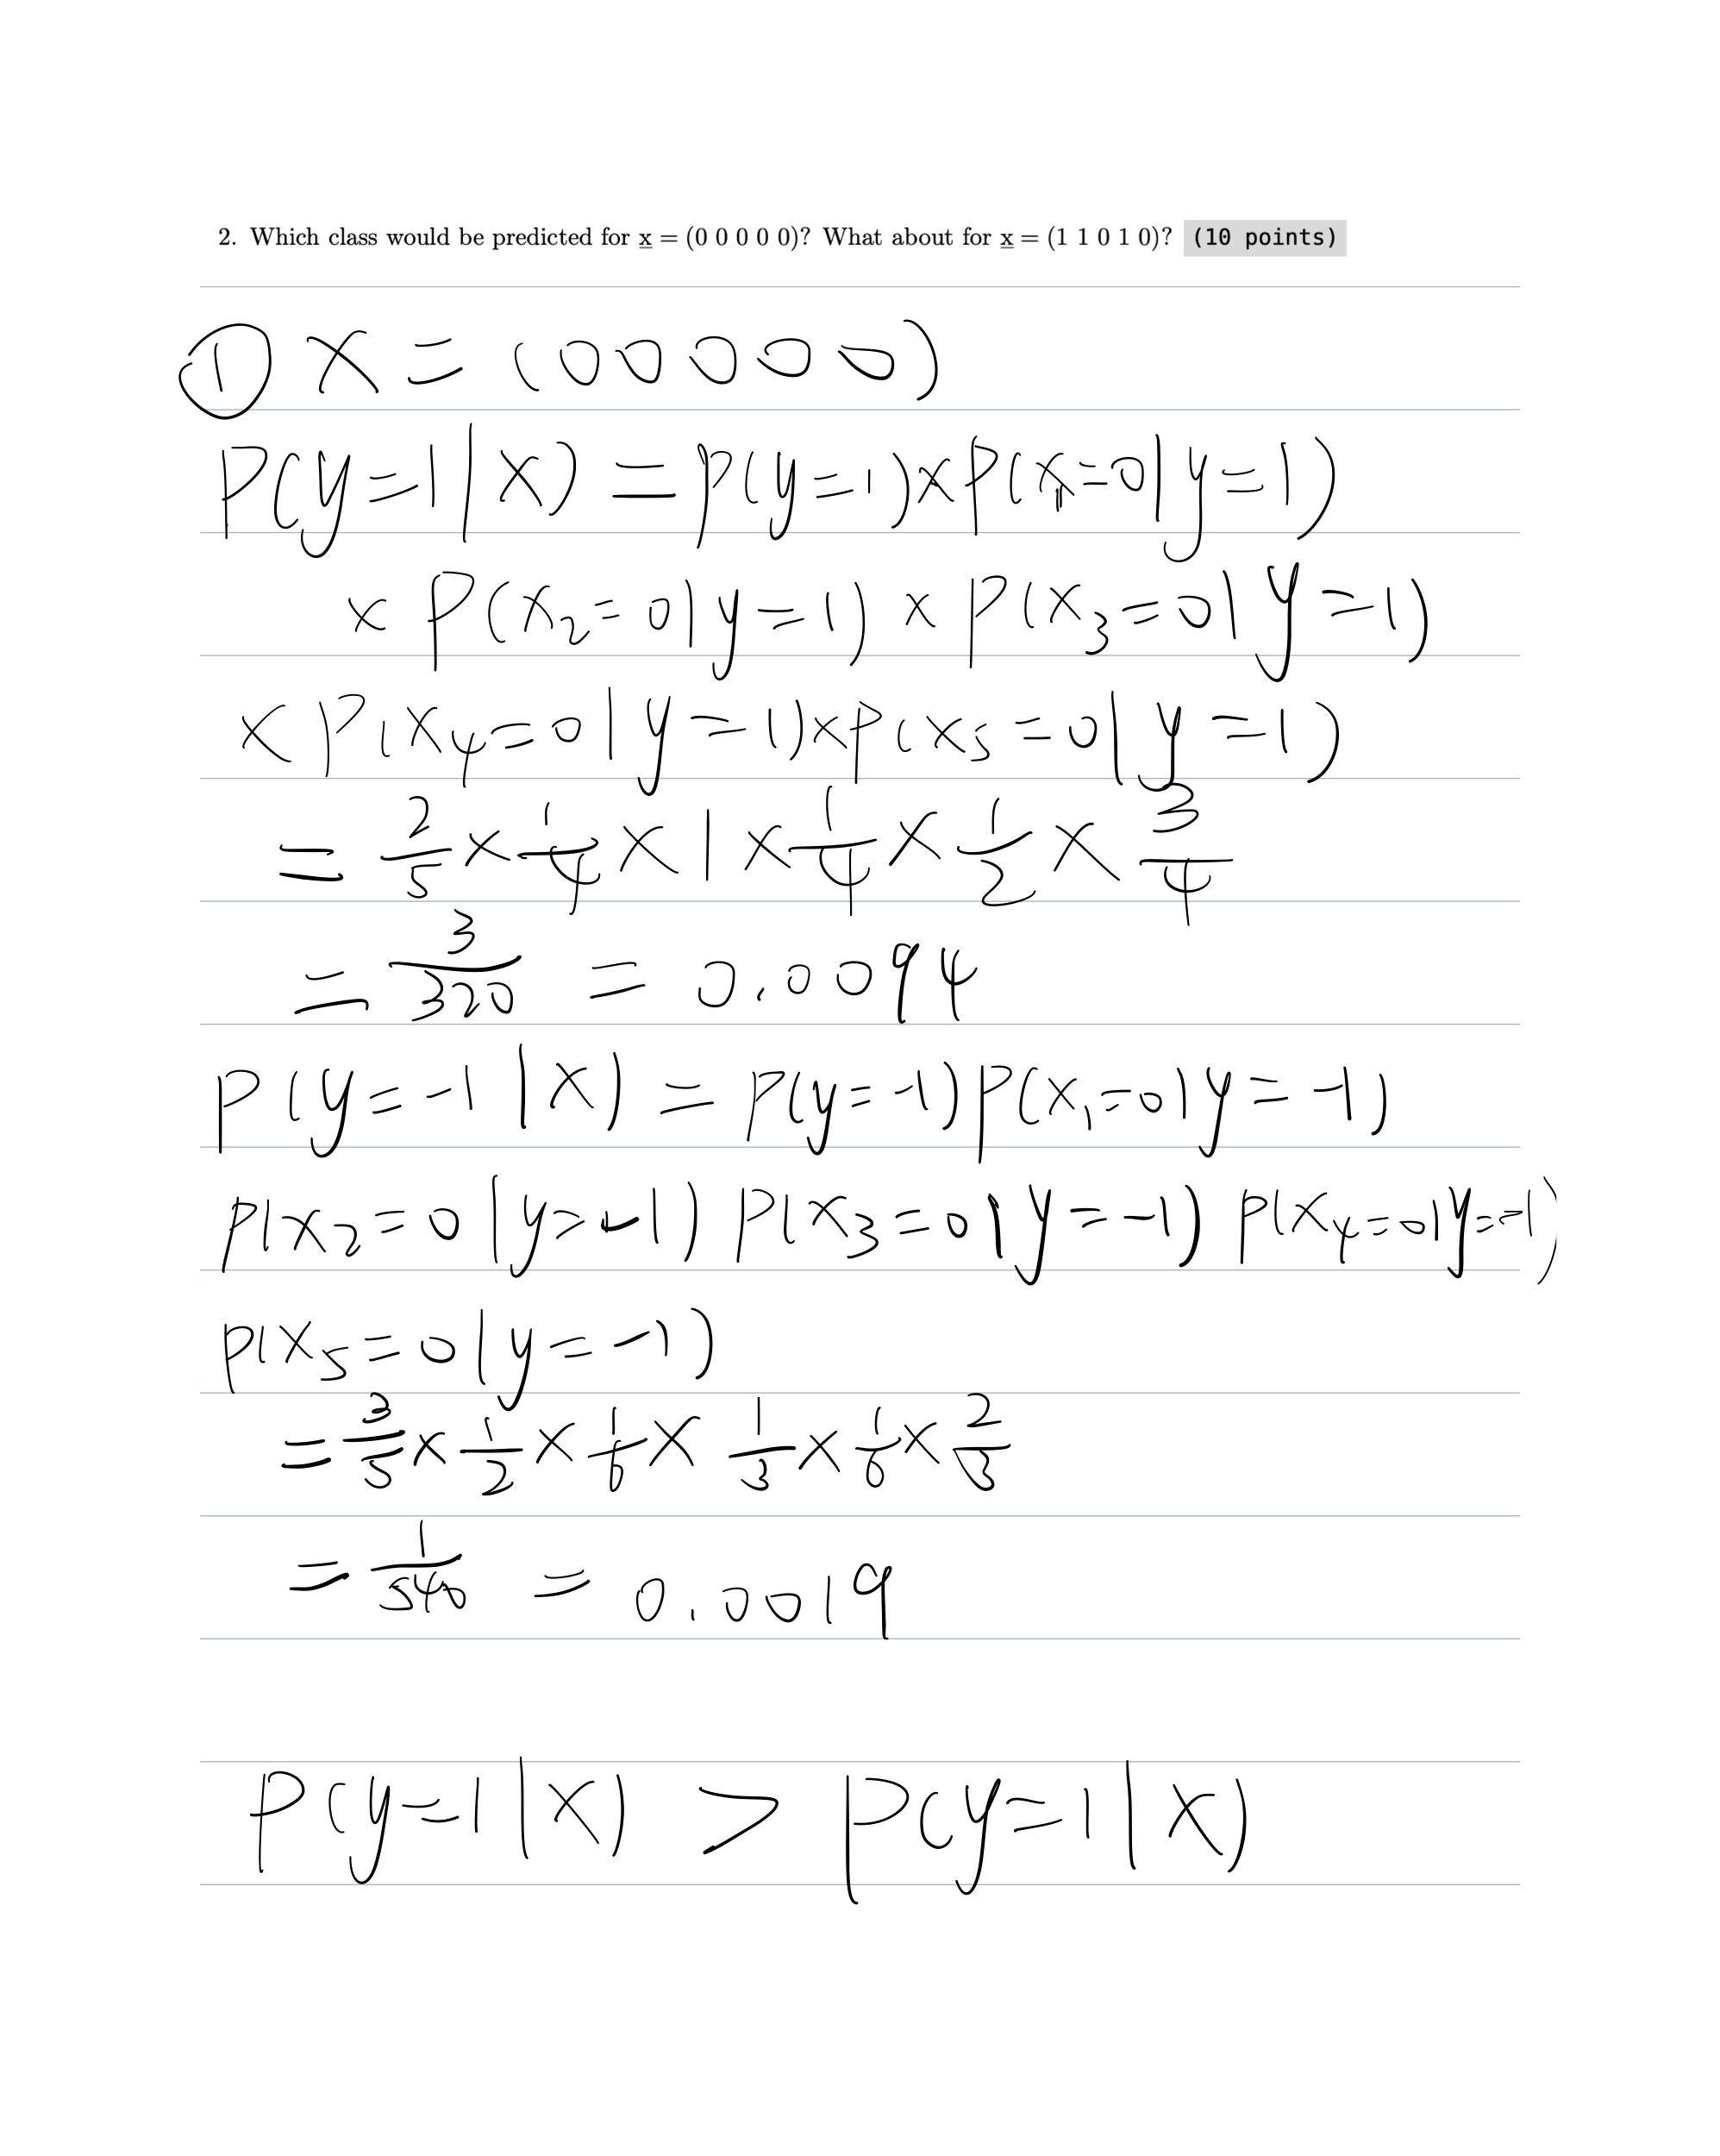 2. Which class would be predicted for x = (0 0 0 0 0)? What about for x = (1 1 0 1 0)? (10 points)
① X = (0 0 0 0 0)
P(y=1|X) = P(y=1)×P(x₁=0|y=1)
× P(x₂=0|y=1) × P(x₃=0|y=1)
× P(x₄=0|y=1)×P(x₅=0|y=1)
= 2/5 × 1/4 × 1 × 1/4 × 1/2 × 3/4
= 3/320 = 0.0094
P(y=-1|X) = P(y=-1)P(x₁=0|y=-1)
P(x₂=0|y=-1) P(x₃=0|y=-1) P(x₄=0|y=-1)
P(x₅=0|y=-1)
= 3/5 × 1/2 × 1/6 × 1/3 × 1/6 × 2/3
= 1/540 = 0.0019
P(y=1|X) > P(y=1|X)